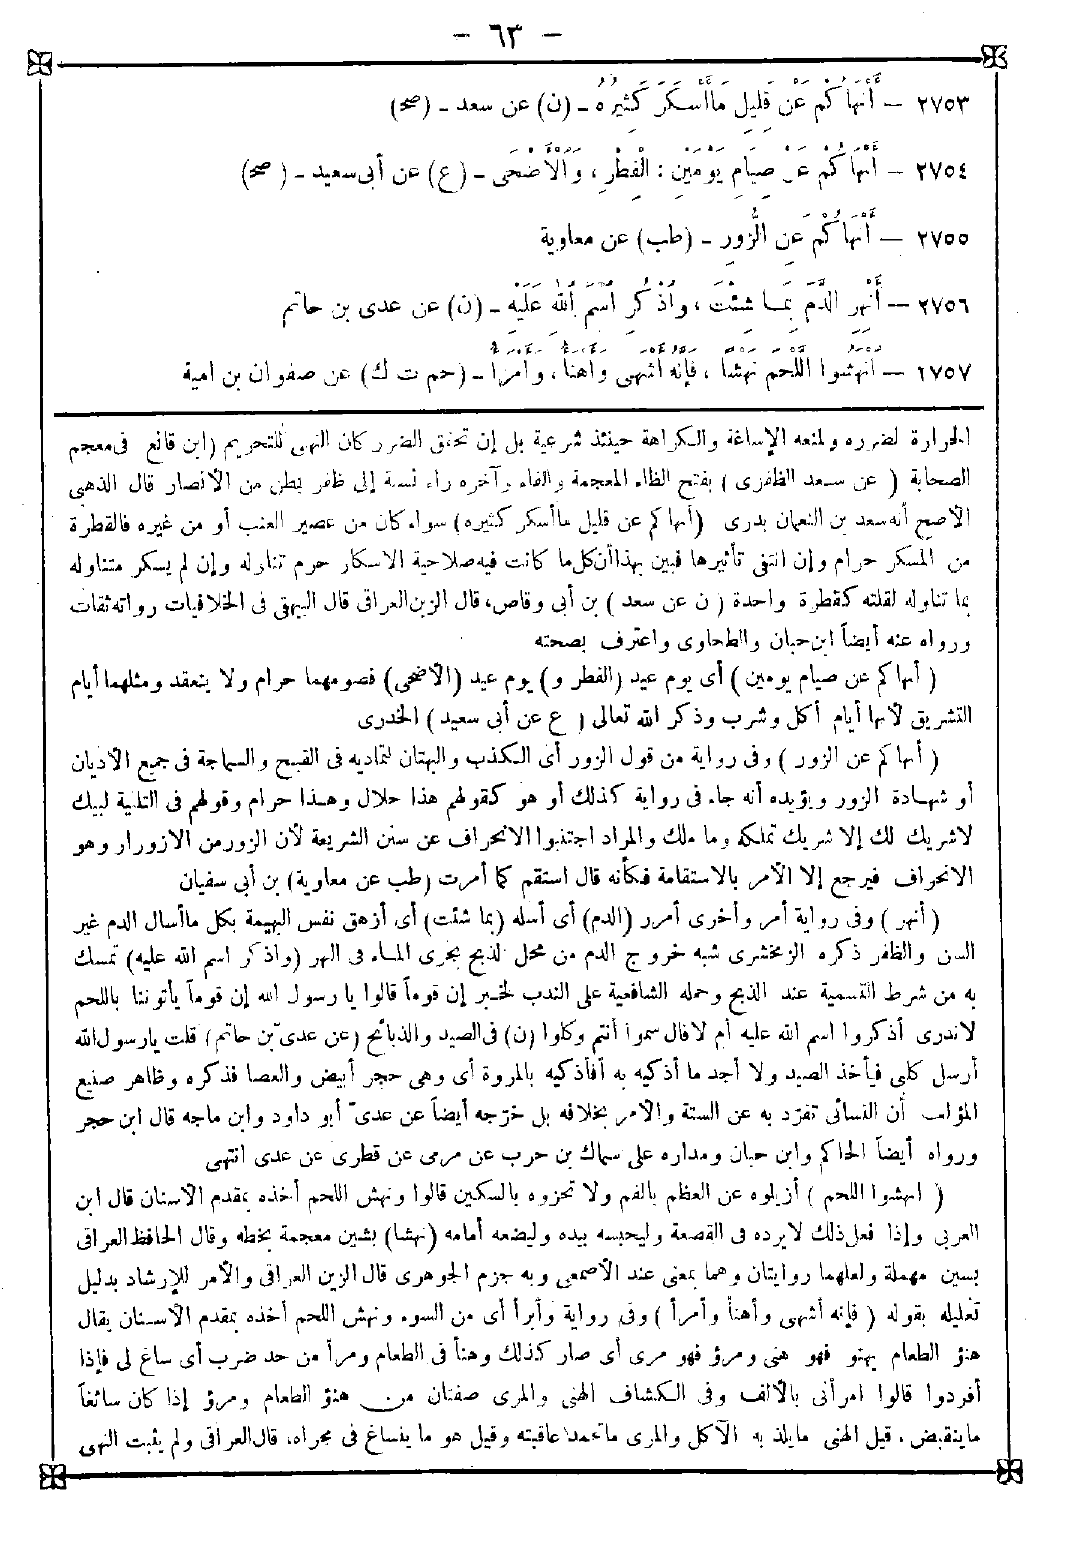 - ٦٣ -
٢٧٥٣ - أَنْهَاكُمْ عَنْ قَلِيلِ مَا أَسْكَرَ كَثِيرُهُ - (ن) عن سعد - (صح)
٢٧٥٤ - أَنْهَاكُمْ عَنْ صِيَامِ يَوْمَيْنِ : الْفِطْرِ ، وَالْأَضْحَى - (ع) عن أبى سعيد - ( صح)
٢٧٥٥ - أَنْهَاكُمْ عَنِ الزُّورِ - (طب) عن معاوية
٢٧٥٦ - أَنْهِرِ الدَّمَ بِمَا شِئْتَ ، وَاذْكُرِ اسْمَ اللهِ عَلَيْهِ - (ن) عن عدى بن حاتم
٢٧٥٧ - انْهَشُوا اللَّحْمَ نَهْشًا ، فَإِنَّهُ أَشْهَى وَأَهْنَأُ ، وَأَمْرَأُ - (حم ت ك) عن صفوان بن امية
الحرارة لضرره ولمنعه الإساغة والكراهة حينئذ شرعية بل إن تحقق الضرر كان النهى للتحريم (ابن قانع فى معجم
الصحابة ( عن سعد الظفرى ) بفتح الظاء المعجمة والفاء وآخره راء نسبة إلى ظفر بطن من الأنصار قال الذهبى
الأصح أنه سعد بن النعمان بدرى (أنهاكم عن قليل ما أسكر كثيره) سواء كان من عصير العنب أو من غيره فالقطرة
من المسكر حرام وإن انتفى تأثيرها فبين بهذا أن كل ما كانت فيه صلاحية الاسكار حرم تناوله وإن لم يسكر متناوله
بما تناوله لقلته كقطرة واحدة ( ن عن سعد ) بن أبى وقاص، قال الزين العراقى قال البيهقى فى الخلافيات رواته ثقات
ورواه عنه أيضاً ابن حبان والطحاوى واعترف بصحته
( أنهاكم عن صيام يومين ) أى يوم عيد (الفطر و) يوم عيد (الأضحى) فصومهما حرام ولا ينعقد ومثلهما أيام
التشريق لأنها أيام أكل وشرب وذكر الله تعالى ( ع عن أبى سعيد ) الخدرى
( أنهاكم عن الزور ) وفى رواية من قول الزور أى الكذب والبهتان لتماديه فى القبح والسماجة فى جميع الأديان
أو شهادة الزور ويؤيده أنه جاء فى رواية كذلك أو هو كقولهم هذا حلال وهذا حرام وقولهم فى التلبية لبيك
لاشريك لك إلا شريك تملكه وما ملك والمراد اجتنبوا الانحراف عن سنن الشريعة لأن الزور من الازورار وهو
الانحراف فيرجع إلا الأمر بالاستقامة فكأنه قال استقم كما أمرت (طب عن معاوية) بن أبى سفيان
( أنهر ) وفى رواية أمر وأخرى أمرر (الدم) أى أسله (بما شئت) أى أزهق نفس البهيمة بكل ما أسال الدم غير
السن والظفر ذكره الزمخشرى شبه خروج الدم من محل الذبح بجرى الماء فى النهر (واذكر اسم الله عليه) تمسك
به من شرط التسمية عند الذبح وحمله الشافعية على الندب لخبر إن قوماً قالوا يا رسول الله إن قوماً يأتوننا باللحم
لاندرى أذكروا اسم الله عليه أم لا قال سموا أنتم وكلوا (ن) فى الصيد والذبائح (عن عدىّ بن حاتم) قلت يارسول الله
أرسل كلبى فيأخذ الصيد ولا أجد ما أذكيه به أفأذكيه بالمروة أى وهى حجر أبيض والعصا فذكره وظاهر صنيع
المؤلف أن النسائى تفرّد به عن الستة والامر بخلافه بل خرّجه أيضاً عن عدىّ أبو داود وابن ماجه قال ابن حجر
ورواه أيضاً الحاكم وابن حبان ومداره على سماك بن حرب عن مرى عن قطرى عن عدى انتهى
( انهشوا اللحم ) أزيلوه عن العظم بالفم ولا تحزوه بالسكين قالوا ونهش اللحم أخذه بمقدم الأسنان قال ابن
العربى وإذا فعل ذلك لا يرده فى القصعة وليحبسه بيده وليضعه أمامه (نهشا) بشين معجمة بخطه وقال الحافظ العراقى
بسين مهملة ولعلهما روايتان وهما بمعنى عند الأصمعى وبه جزم الجوهرى قال الزين العراقى والأمر للإرشاد بدليل
تعليله بقوله ( فإنه أشهى وأهنأ وأمرأ ) وفى رواية وأبرأ أى من السوء ونهش اللحم أخذه بمقدم الأسنان يقال
هنؤ الطعام يهنو فهو هنى ومرؤ فهو مرى أى صار كذلك وهنأ فى الطعام ومرأ من حد ضرب أى ساغ لى فإذا
أفردوا قالوا امرأنى بالألف وفى الكشاف الهنى والمرى صفتان من هنؤ الطعام ومرؤ إذا كان سائغاً
ما ينقبض ، قيل الهنى ما يلذ به الآكل والمرى ما تحمد عاقبته وقيل هو ما ينساغ فى مجراه، قال العراقى ولم يثبت النهى